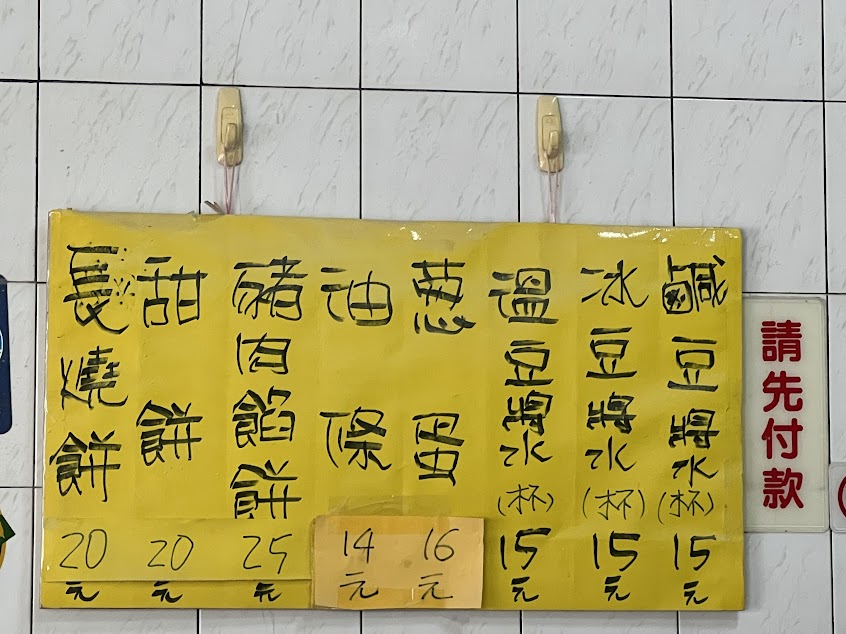 請先付款
鹹豆漿(杯)15元
冰豆漿(杯)15元
溫豆漿(杯)15元
葱蛋16元
油條14元
豬肉餡餅25元
甜餅20元
長燒餅20元